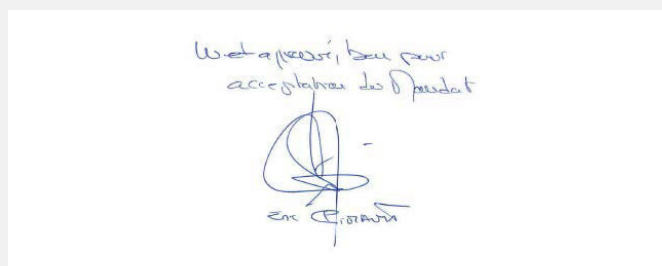 Lu et approuvé, bon pour
acceptation du Mandat
Eric